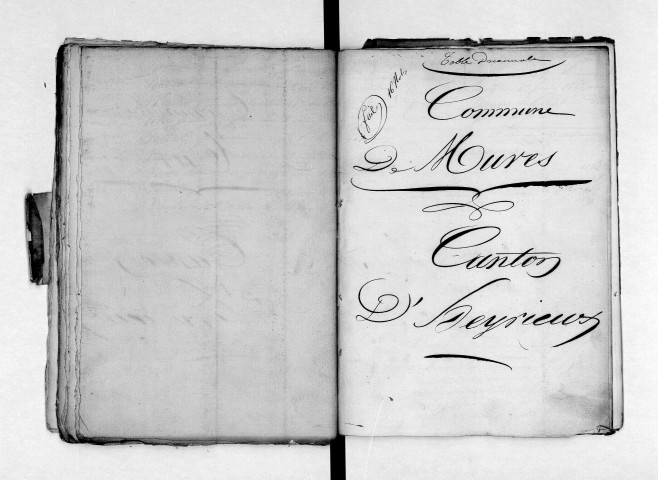 Table Décennale
fait
Commune
De Mures
Canton
D'heyrieux